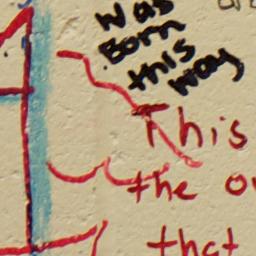 was
Born
this
way
This
the
that